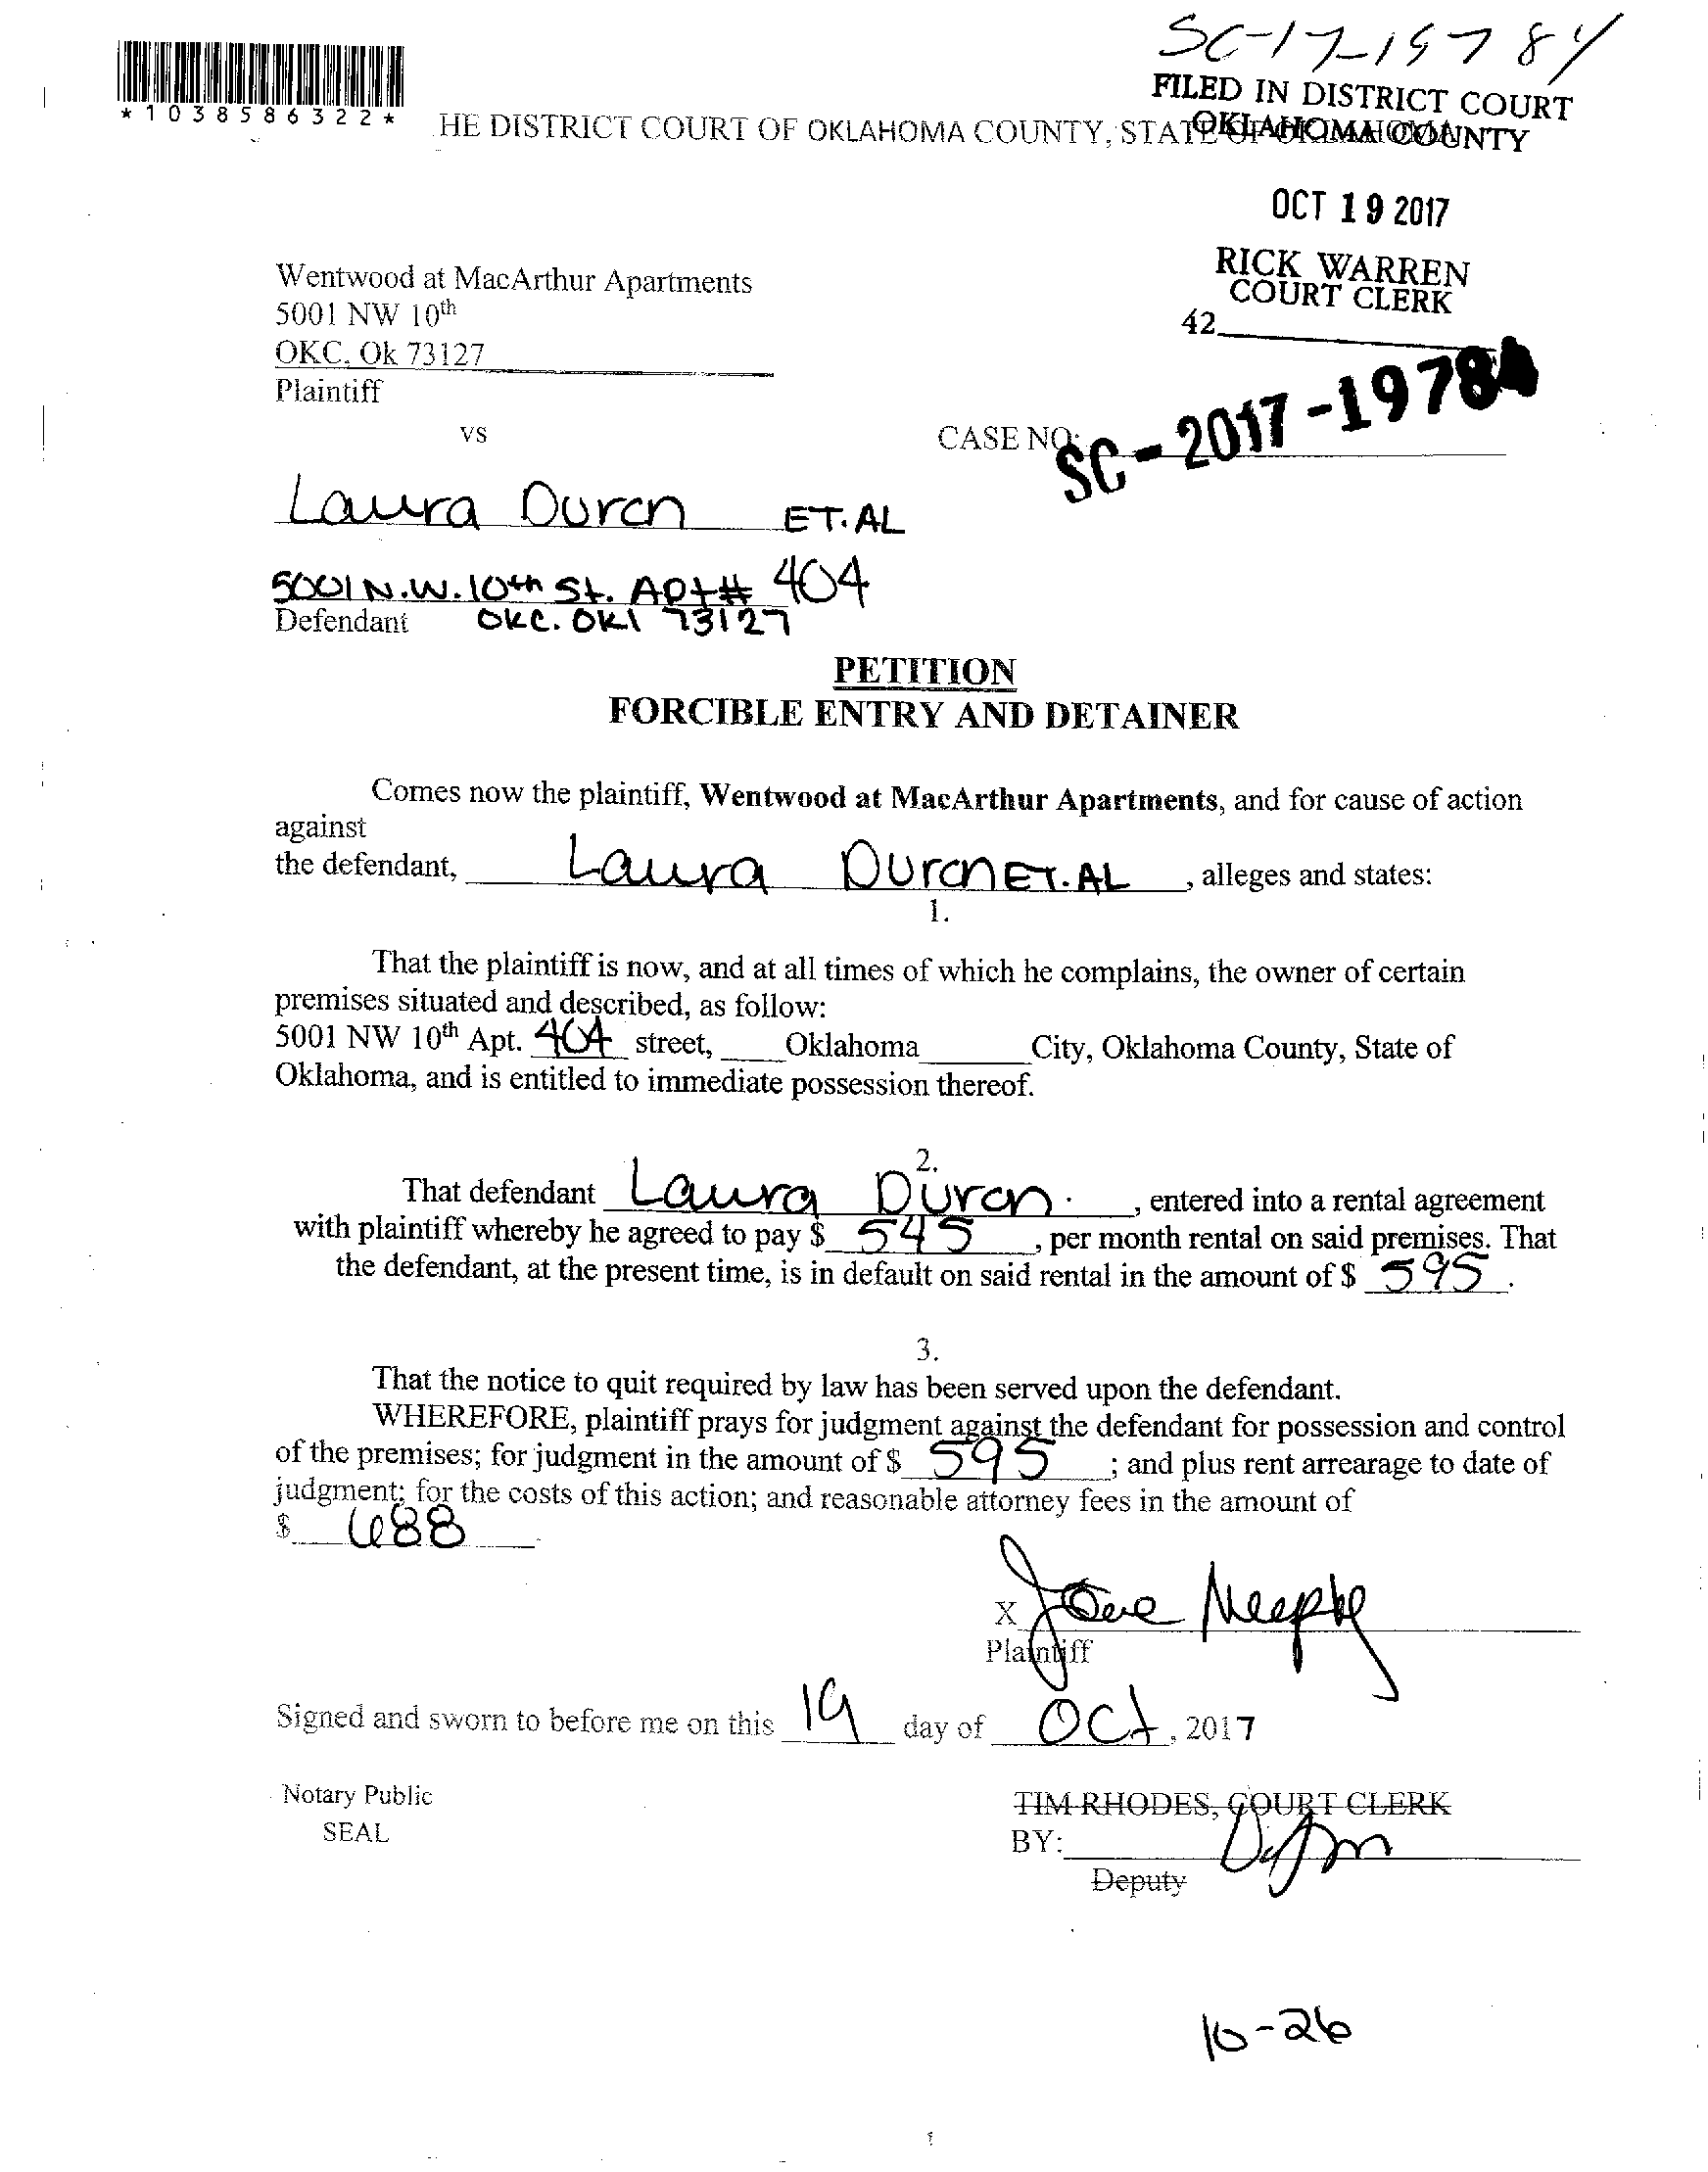 SC-17-19784
FILED IN DISTRICT COURT
OKLAHOMA COUNTY
*1038586322*
HE DISTRICT COURT OF OKLAHOMA COUNTY, STATE OF OKLAHOMA
OCT 19 2017
RICK WARREN
COURT CLERK
42
Wentwood at MacArthur Apartments
5001 NW 10th
OKC, Ok 73127
Plaintiff
vs
CASE NO: SC-2017-19784
Laura Duran ET.AL
5001 N.W. 10th St. Apt# 404
Defendant OKC. OKl 73127
PETITION
FORCIBLE ENTRY AND DETAINER
Comes now the plaintiff, Wentwood at MacArthur Apartments, and for cause of action
against
the defendant, Laura Duran ET.AL, alleges and states:
1.
That the plaintiff is now, and at all times of which he complains, the owner of certain
premises situated and described, as follow:
5001 NW 10th Apt. 404 street, Oklahoma City, Oklahoma County, State of
Oklahoma, and is entitled to immediate possession thereof.
2.
That defendant Laura Duran., entered into a rental agreement
with plaintiff whereby he agreed to pay $ 545, per month rental on said premises. That
the defendant, at the present time, is in default on said rental in the amount of $ 595.
3.
That the notice to quit required by law has been served upon the defendant.
WHEREFORE, plaintiff prays for judgment against the defendant for possession and control
of the premises; for judgment in the amount of $ 595; and plus rent arrearage to date of
judgment; for the costs of this action; and reasonable attorney fees in the amount of
$ 688.
X
Plaintiff
Signed and sworn to before me on this 19 day of Oct, 2017
Notary Public
SEAL
TIM RHODES, COURT CLERK
BY:
Deputy
10-26